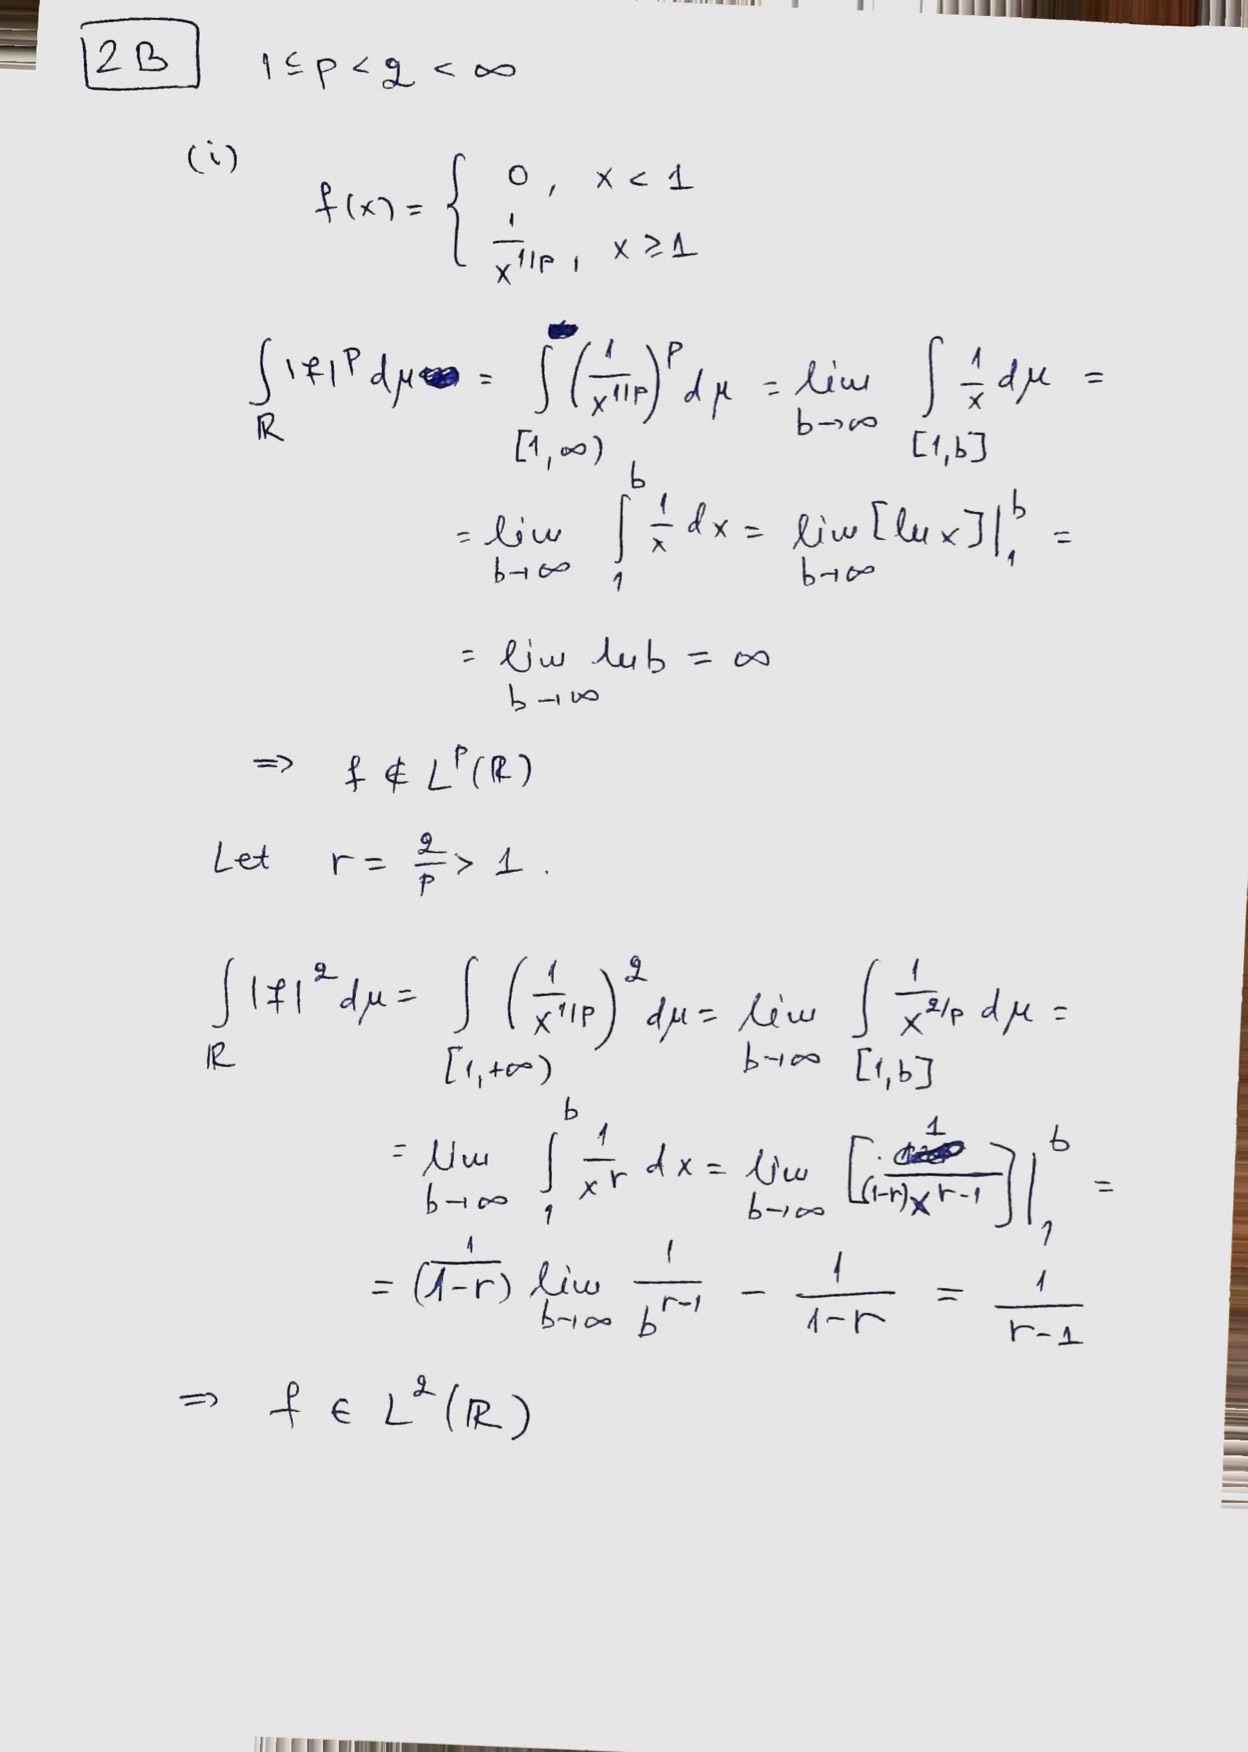 2B 1 ≤ p < q < ∞
(i)
f(x) = { 0, x < 1
1/x^{1/p}, x ≥ 1
∫_ℝ |f|^p dμ = ∫_{[1,∞)} (1/x^{1/p})^p dμ = lim_{b→∞} ∫_{[1,b]} 1/x dμ =
= lim_{b→∞} ∫_1^b 1/x dx = lim_{b→∞} [ln x]|_1^b =
= lim_{b→∞} ln b = ∞
⇒ f ∉ L^p(ℝ)
Let r = q/p > 1.
∫_ℝ |f|^q dμ = ∫_{[1,+∞)} (1/x^{1/p})^q dμ = lim_{b→∞} ∫_{[1,b]} 1/x^{q/p} dμ =
= lim_{b→∞} ∫_1^b 1/x^r dx = lim_{b→∞} [1/((1-r)x^{r-1})]|_1^b =
= 1/(1-r) lim_{b→∞} 1/b^{r-1} - 1/(1-r) = 1/(r-1)
⇒ f ∈ L^q(ℝ)